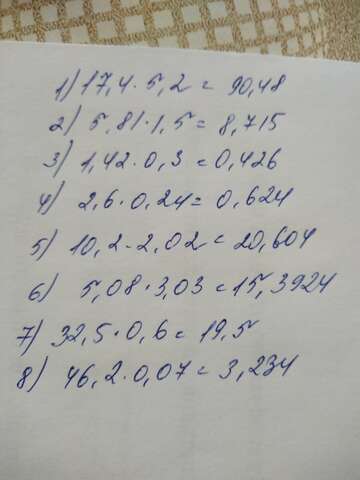 1) 17,4 · 5,2 = 90,48
2) 5,81 · 1,5 = 8,715
3) 1,42 · 0,3 = 0,426
4) 2,6 · 0,24 = 0,624
5) 10,2 · 2,02 = 20,604
6) 5,08 · 3,03 = 15,3924
7) 32,5 · 0,6 = 19,5
8) 46,2 · 0,07 = 3,234